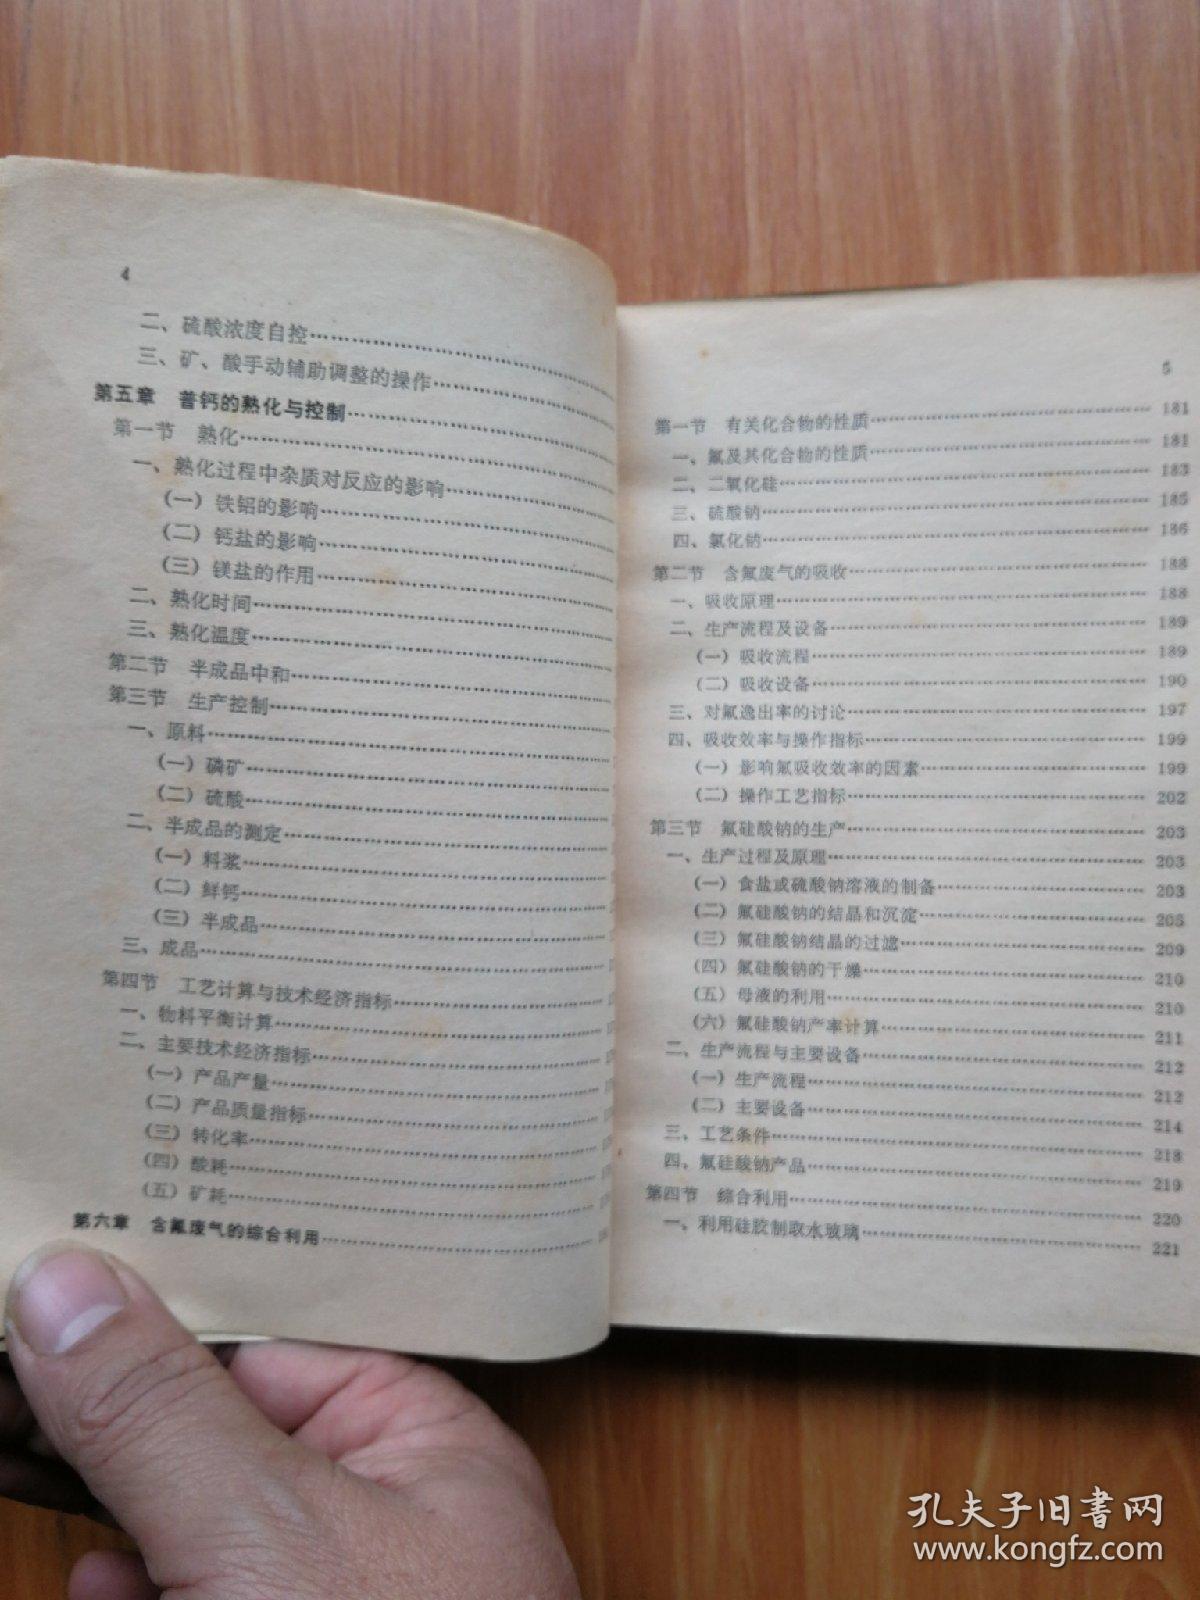 4
二、硫酸浓度自控
三、矿、酸手动辅助调整的操作
第五章 普钙的熟化与控制
第一节 熟化
一、熟化过程中杂质对反应的影响
(一)铁铝的影响
(二)钙盐的影响
(三)镁盐的作用
二、熟化时间
三、熟化温度
第二节 半成品中和
第三节 生产控制
一、原料
(一)磷矿
(二)硫酸
二、半成品的测定
(一)料浆
(二)鲜钙
(三)半成品
三、成品
第四节 工艺计算与技术经济指标
一、物料平衡计算
二、主要技术经济指标
(一)产品产量
(二)产品质量指标
(三)转化率
(四)酸耗
(五)矿耗
第六章 含氟废气的综合利用
5
第一节 有关化合物的性质 181
一、氟及其化合物的性质 181
二、二氧化硅 183
三、硫酸钠 185
四、氯化钠 186
第二节 含氟废气的吸收 188
一、吸收原理 188
二、生产流程及设备 189
(一)吸收流程 189
(二)吸收设备 190
三、对氟逸出率的讨论 197
四、吸收效率与操作指标 199
(一)影响氟吸收效率的因素 199
(二)操作工艺指标 202
第三节 氟硅酸钠的生产 203
一、生产过程及原理 203
(一)食盐或硫酸钠溶液的制备 203
(二)氟硅酸钠的结晶和沉淀 205
(三)氟硅酸钠结晶的过滤 209
(四)氟硅酸钠的干燥 210
(五)母液的利用 210
(六)氟硅酸钠产率计算 211
二、生产流程与主要设备 212
(一)生产流程 212
(二)主要设备 214
三、工艺条件 218
四、氟硅酸钠产品 219
第四节 综合利用 220
一、利用硅胶制取水玻璃 221
孔夫子旧书网
www.kongfz.com